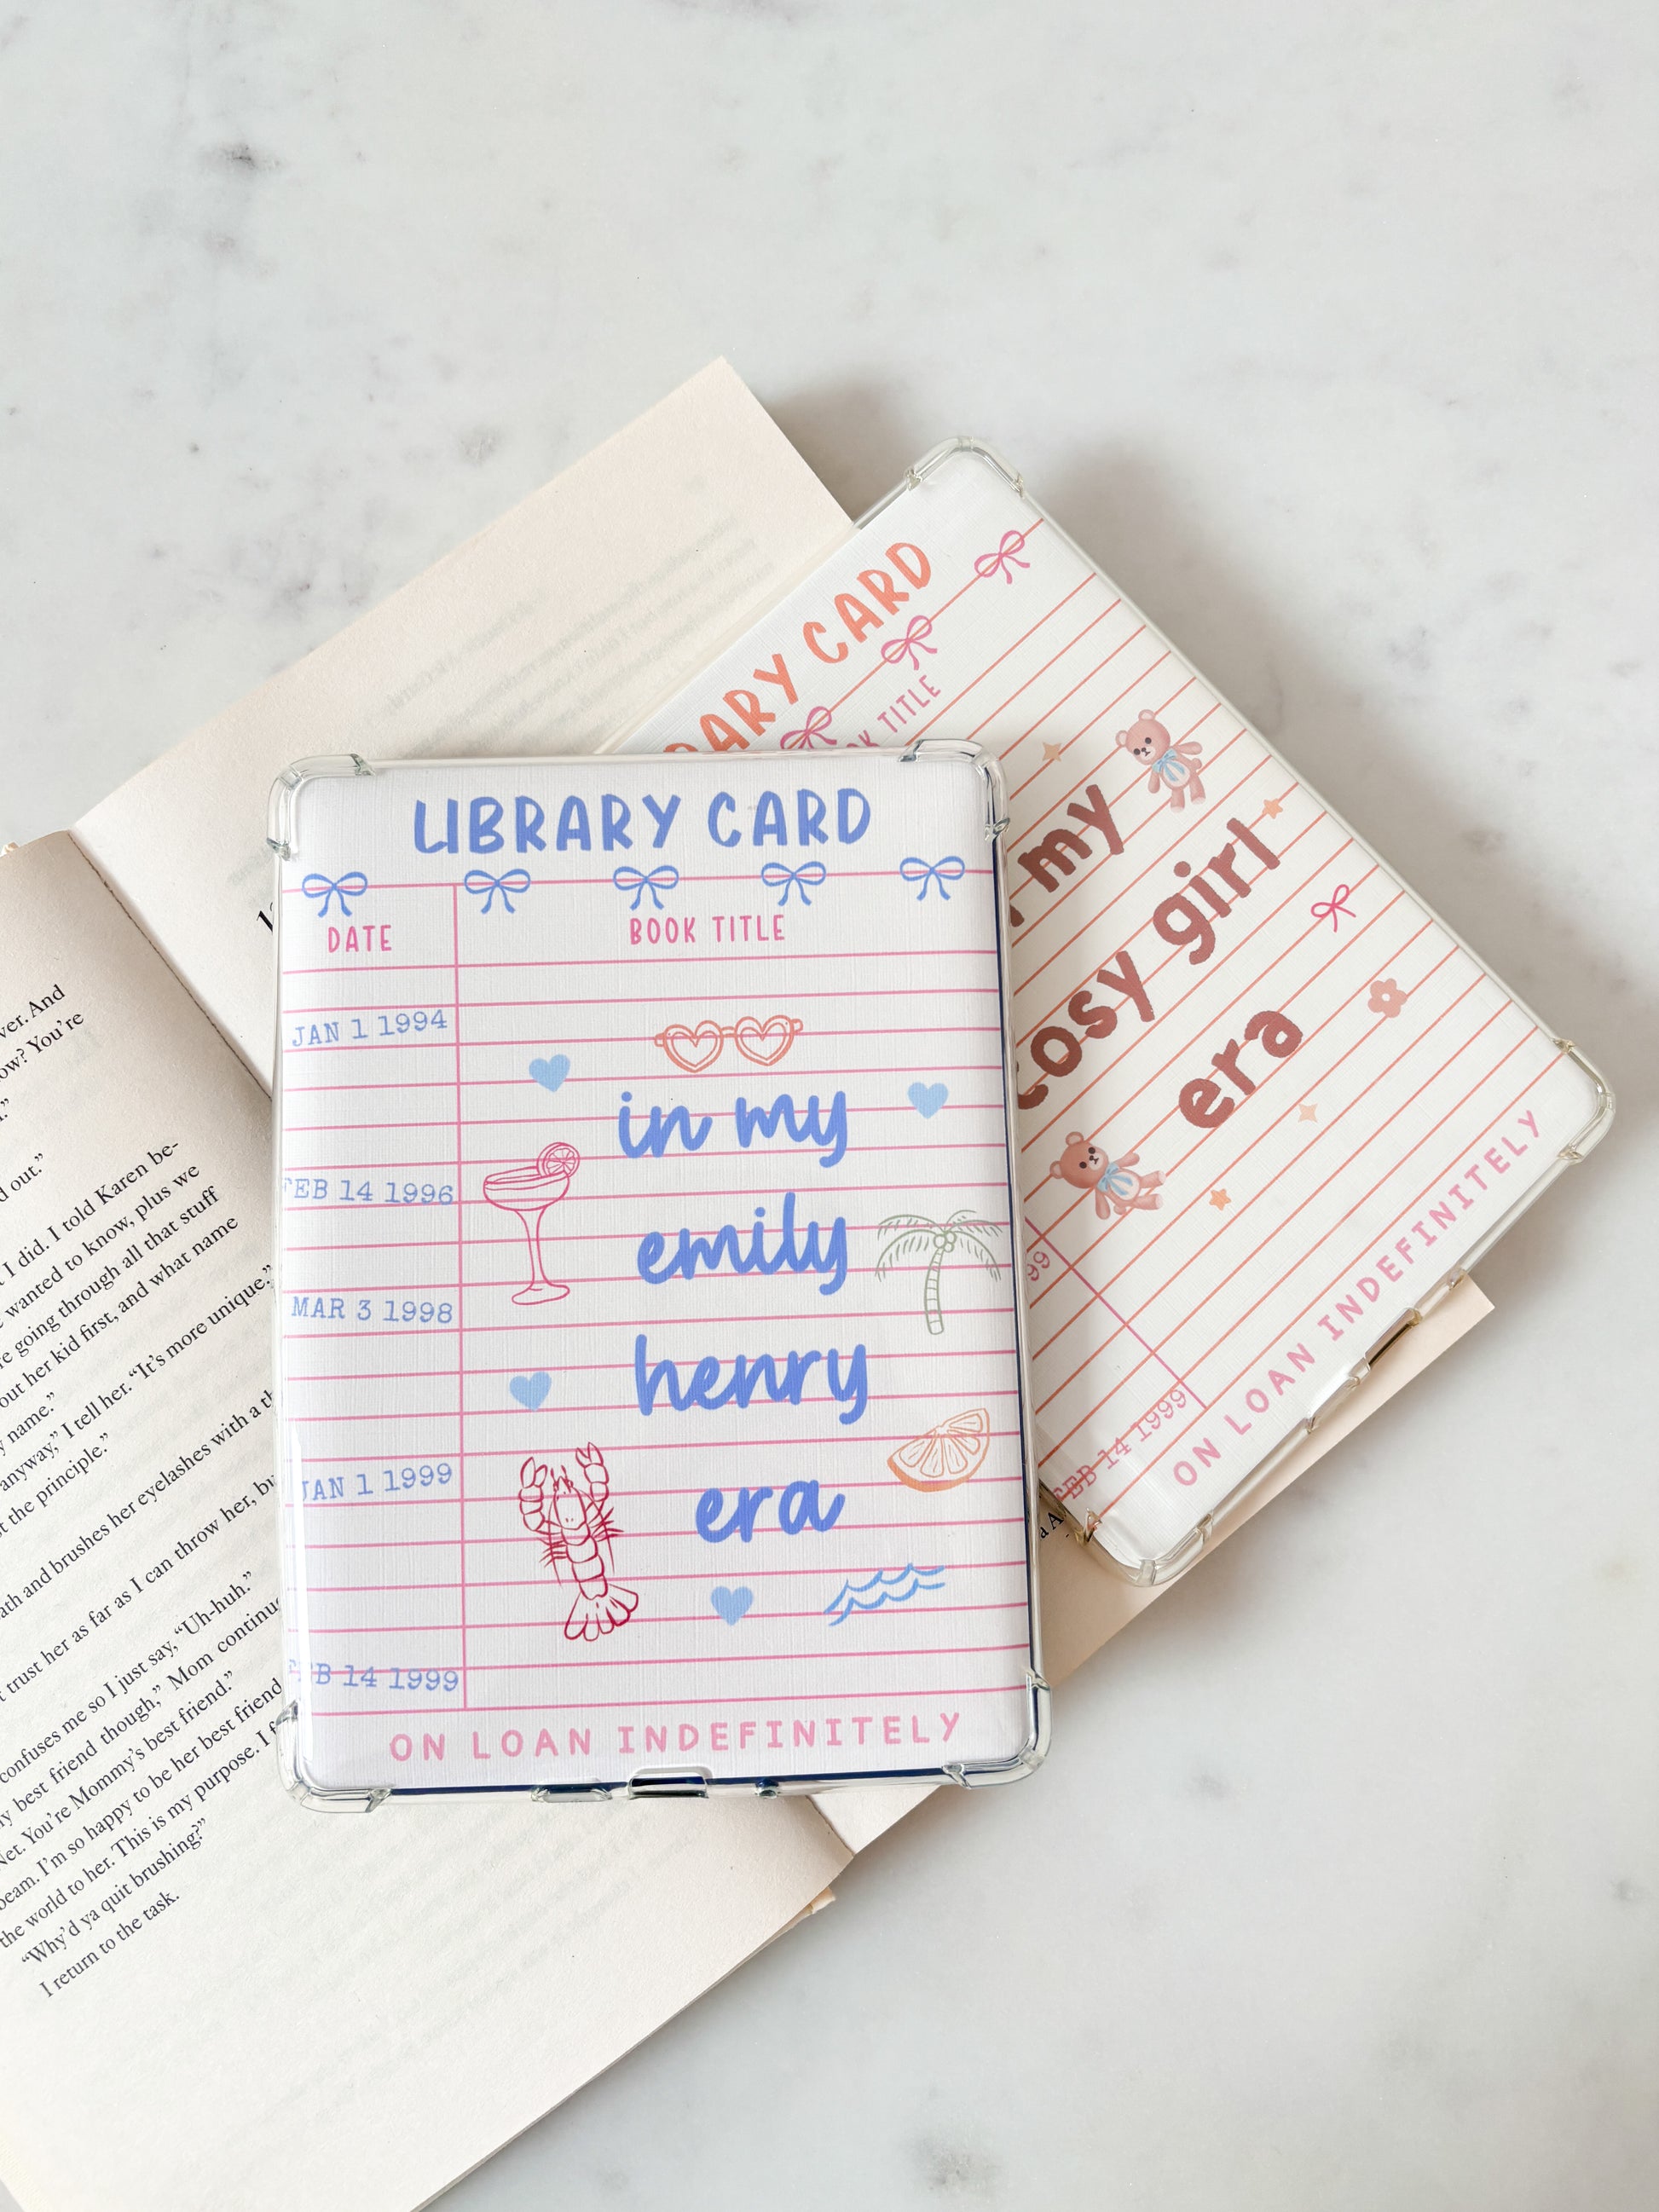 LIBRARY CARD
DATE
BOOK TITLE
JAN 1 1994
FEB 14 1996
MAR 3 1998
JAN 1 1999
FEB 14 1999
in my
emily
henry
era
ON LOAN INDEFINITELY
ARY CARD
TITLE
my
cosy girl
era
99
FEB 14 1999
ON LOAN INDEFINITELY
ver. And
ow? You're
d out."
t I did. I told Karen be-
wanted to know, plus we
re going through all that stuff
out her kid first, and what name
y name."
anyway," I tell her. "It's more unique,"
t the principle."
ath and brushes her eyelashes with a
t trust her as far as I can throw her,
confuses me so I just say, "Uh-huh."
y best friend though," Mom
Net. You're Mommy's best friend."
beam. I'm so happy to be her best friend
the world to her. This is my purpose. I
"Why'd ya quit brushing?"
I return to the task.